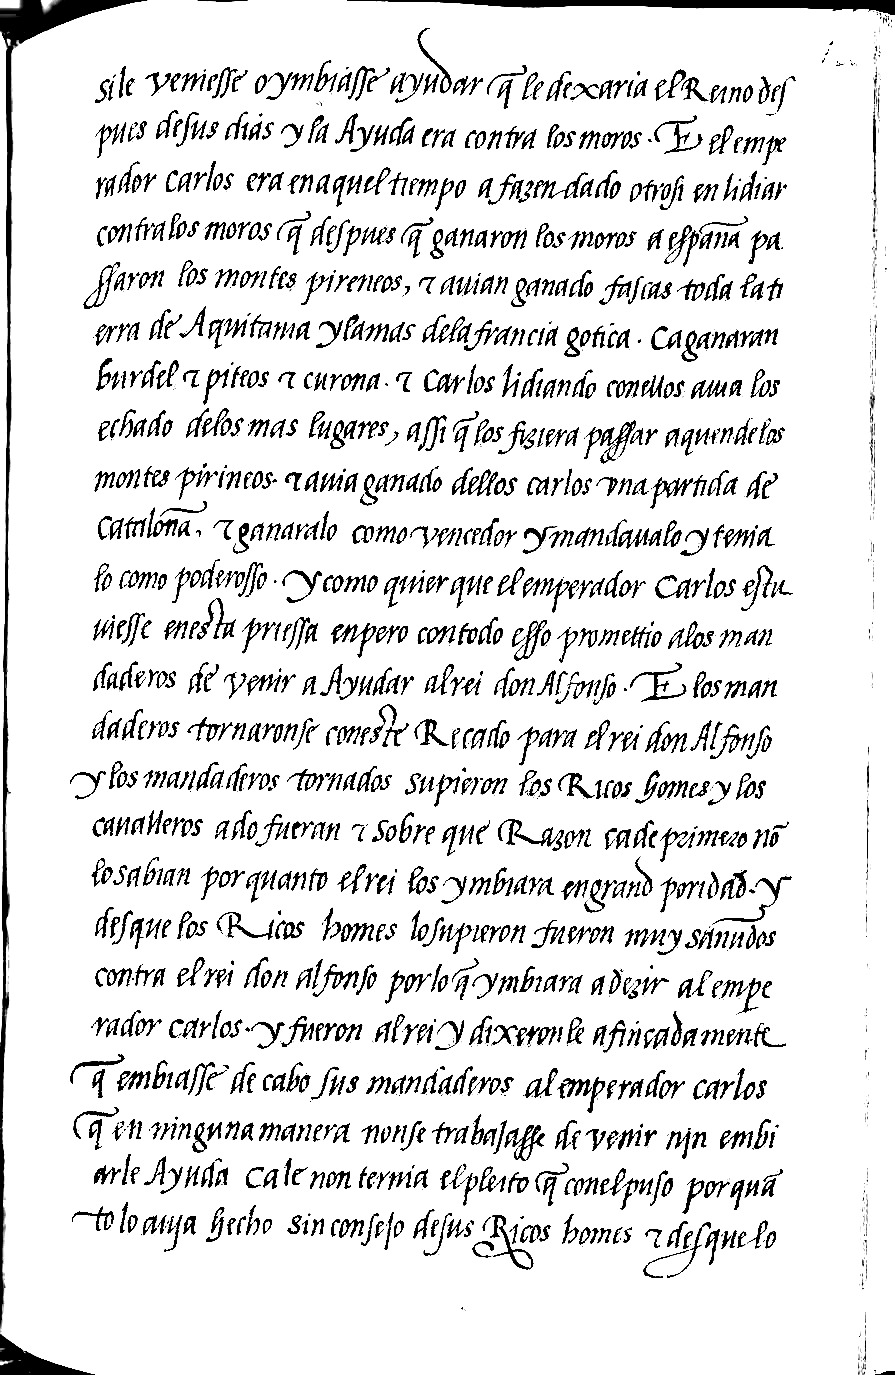 si le veniesse o ymbiasse ayudar q̃ le dexaria el Reino des
pues de sus dias y la Ayuda era contra los moros. E el empe
rador Carlos era en aquel tiempo a fazendado otrosi en lidiar
contra los moros q̃ despues q̃ ganaron los moros a espana pa
ssaron los montes pireneos, τ auian ganado fascas toda la ti
erra de Aquitania y la mas de la francia gotica. Ca ganaran
burdel τ piteos τ curona. τ Carlos lidiando conellos auia los
echado delos mas lugares, assi q̃ los fiziera passar aquende los
montes pirineos. τ auia ganado dellos carlos vna partida de
Cataloña, τ ganaralo como vencedor y mandaualo y tenia
lo como poderosso. y como quier que el emperador Carlos estu
uiesse enesta priessa enpero con todo esso promettio alos man
daderos de venir a Ayudar al rei don Alfonso. E los man
daderos tornaronse coneste Recado para el rei don Alfonso
y los mandaderos tornados supieron los Ricos homes y los
caualleros ado fueran τ sobre que Razon ca de primero nõ
lo sabian por quanto el rei los ymbiara en grand poridad. y
desque los Ricos homes lo supieron fueron muy sanudos
contra el rei don alfonso por lo q̃ ymbiara a dezir al empe
rador carlos. y fueron al rei y dixeronle afincadamente
q̃ embiasse de cabo sus mandaderos al emperador carlos
q̃ en ninguna manera nonse trabajasse de venir nin embi
arle Ayuda Ca le non ternia el pleito q̃ conel puso por quã
to lo auia hecho sin consejo de sus Ricos homes τ desque lo